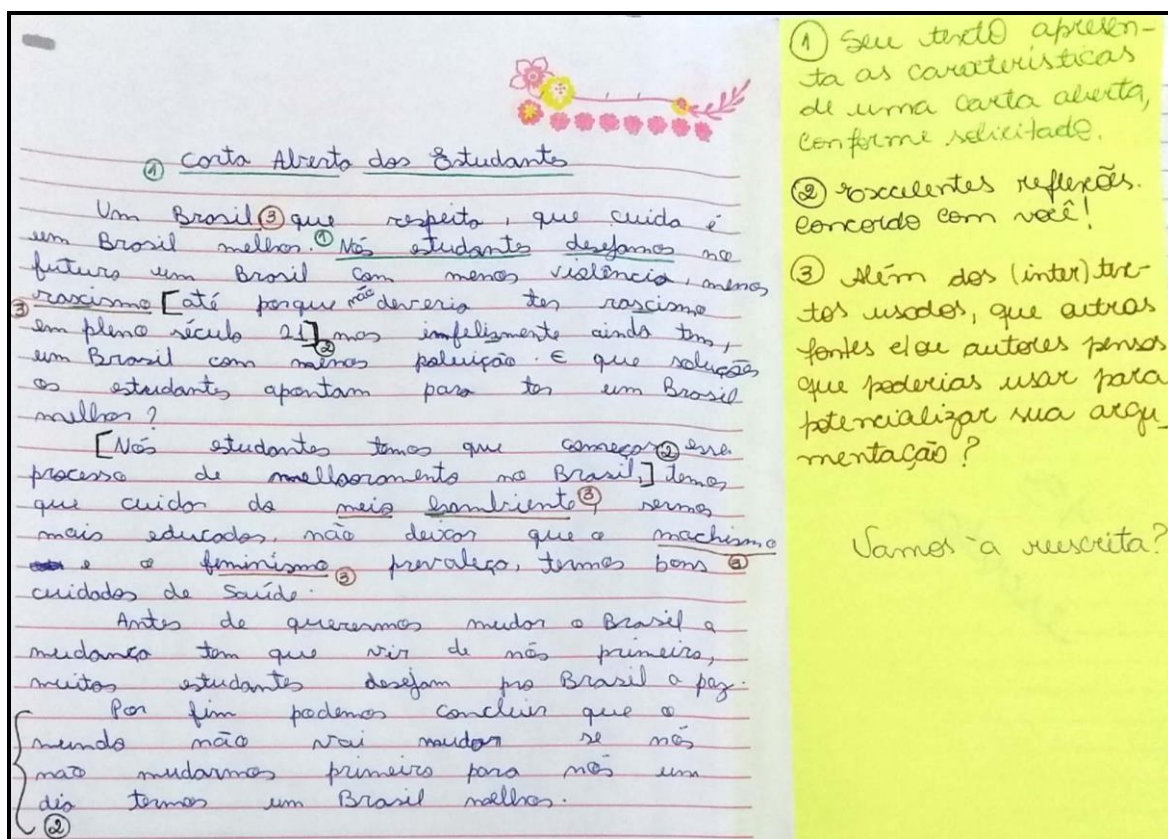 ① Carta Aberta dos Estudantes
Um Brasil ③ que respeita, que cuida é
um Brasil melhor. ① Nós estudantes desejamos no
futuro um Brasil com menos violência, menos
③ rascismo [até porque não deveria ter rascismo
em pleno século 21] ② mas imfelismente ainda tem,
um Brasil com menos poluição. E que soluções
os estudantes apontam para ter um Brasil
melhor?
[Nós estudantes temos que começar ② esse
processo de melhoramento no Brasil,] temos
que cuidar do meio hambiente ③, sermos
mais educados, não deixar que o machismo ③
e o feminismo ③ prevaleça, termos bons
cuidados de Saúde.
Antes de querermos mudar o Brasil a
mudança tem que vir de nós primeiro,
muitos estudantes desejam pro Brasil a paz.
Por fim podemos concluir que o
mundo não vai mudar se nós
não mudarmos primeiro para nós um
dia termos um Brasil melhor.
②
① Seu texto apresen-
ta as características
de uma carta aberta,
conforme solicitado.
② Excelentes reflexões.
Concordo com você!
③ Além dos (inter)tex-
tos usados, que outras
fontes e/ou autores pensas
que poderias usar para
potencializar sua argu-
mentação?
Vamos a reescrita?